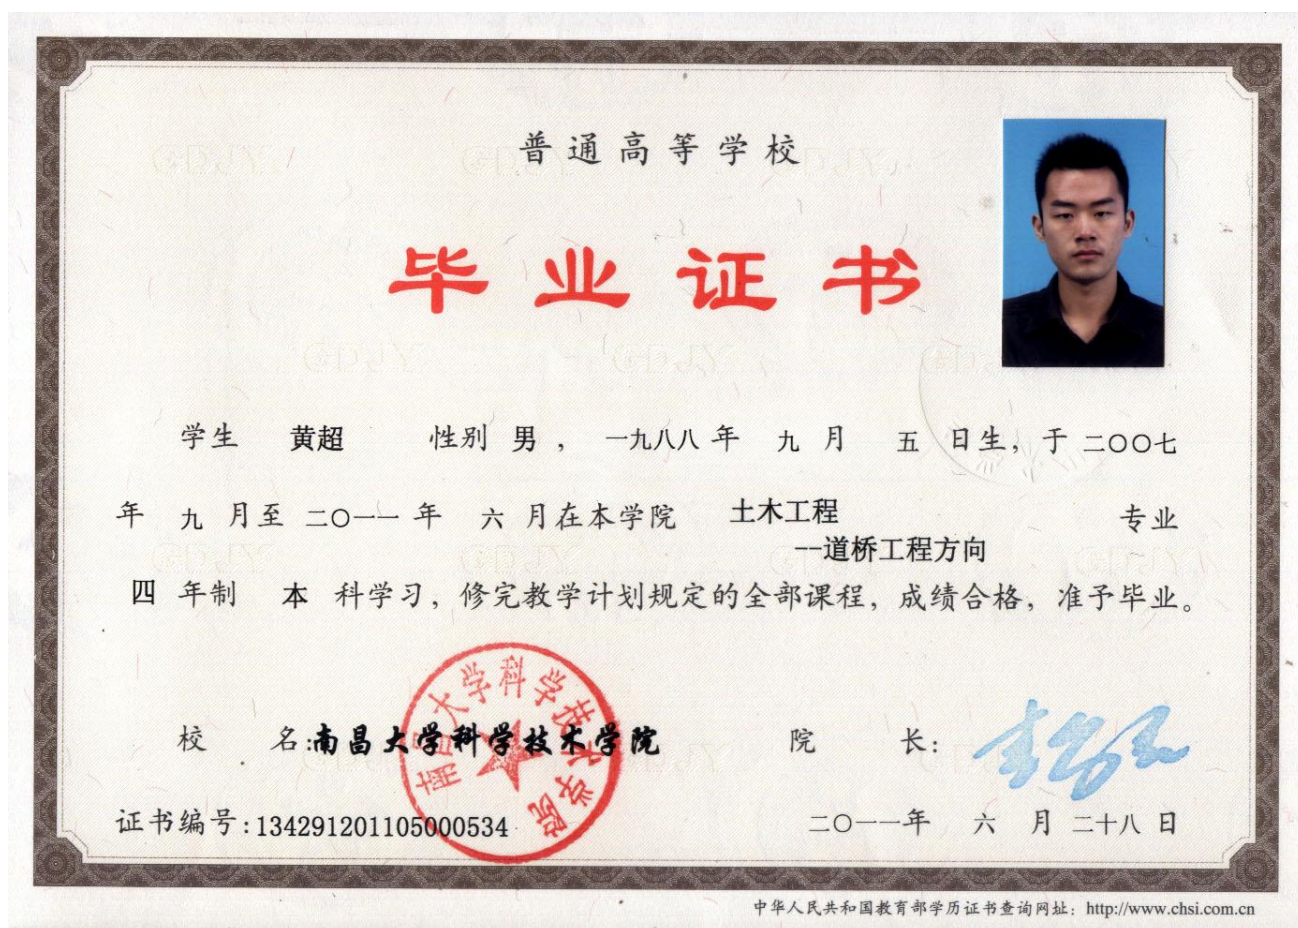 普通高等学校
毕业证书
学生 黄超 性别 男 ， 一九八八 年 九 月 五 日生，于 二〇〇七
年 九 月至 二〇一一 年 六 月在本学院 土木工程 专业
--道桥工程方向
四 年制 本 科学习，修完教学计划规定的全部课程，成绩合格，准予毕业。
南昌大学科学技术学院
校 名:南昌大学科学技术学院 院 长:
证书编号:134291201105000534 二〇一一年 六 月 二十八 日
中华人民共和国教育部学历证书查询网址：http://www.chsi.com.cn